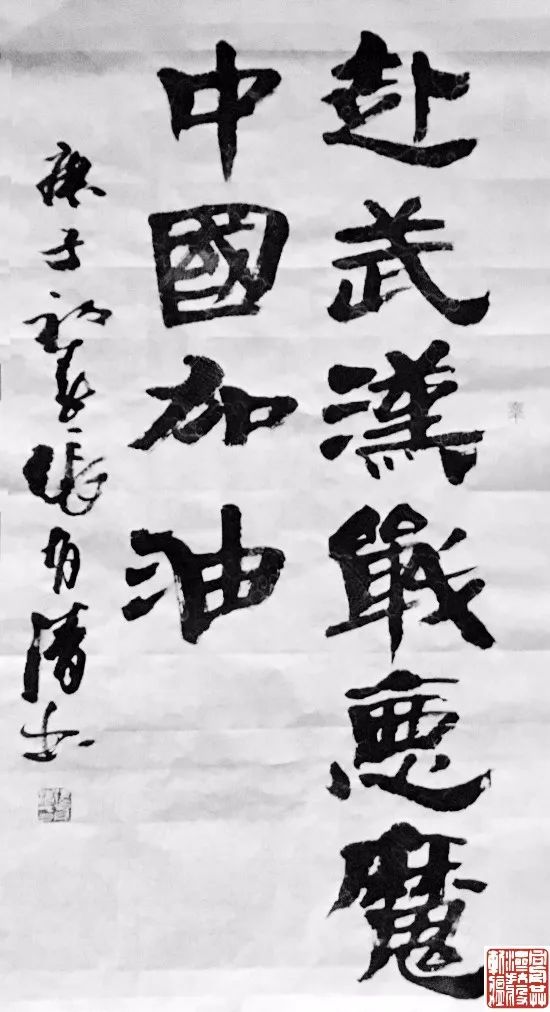 赴武漢戰惡魔
中國加油
庚子初春張有清书